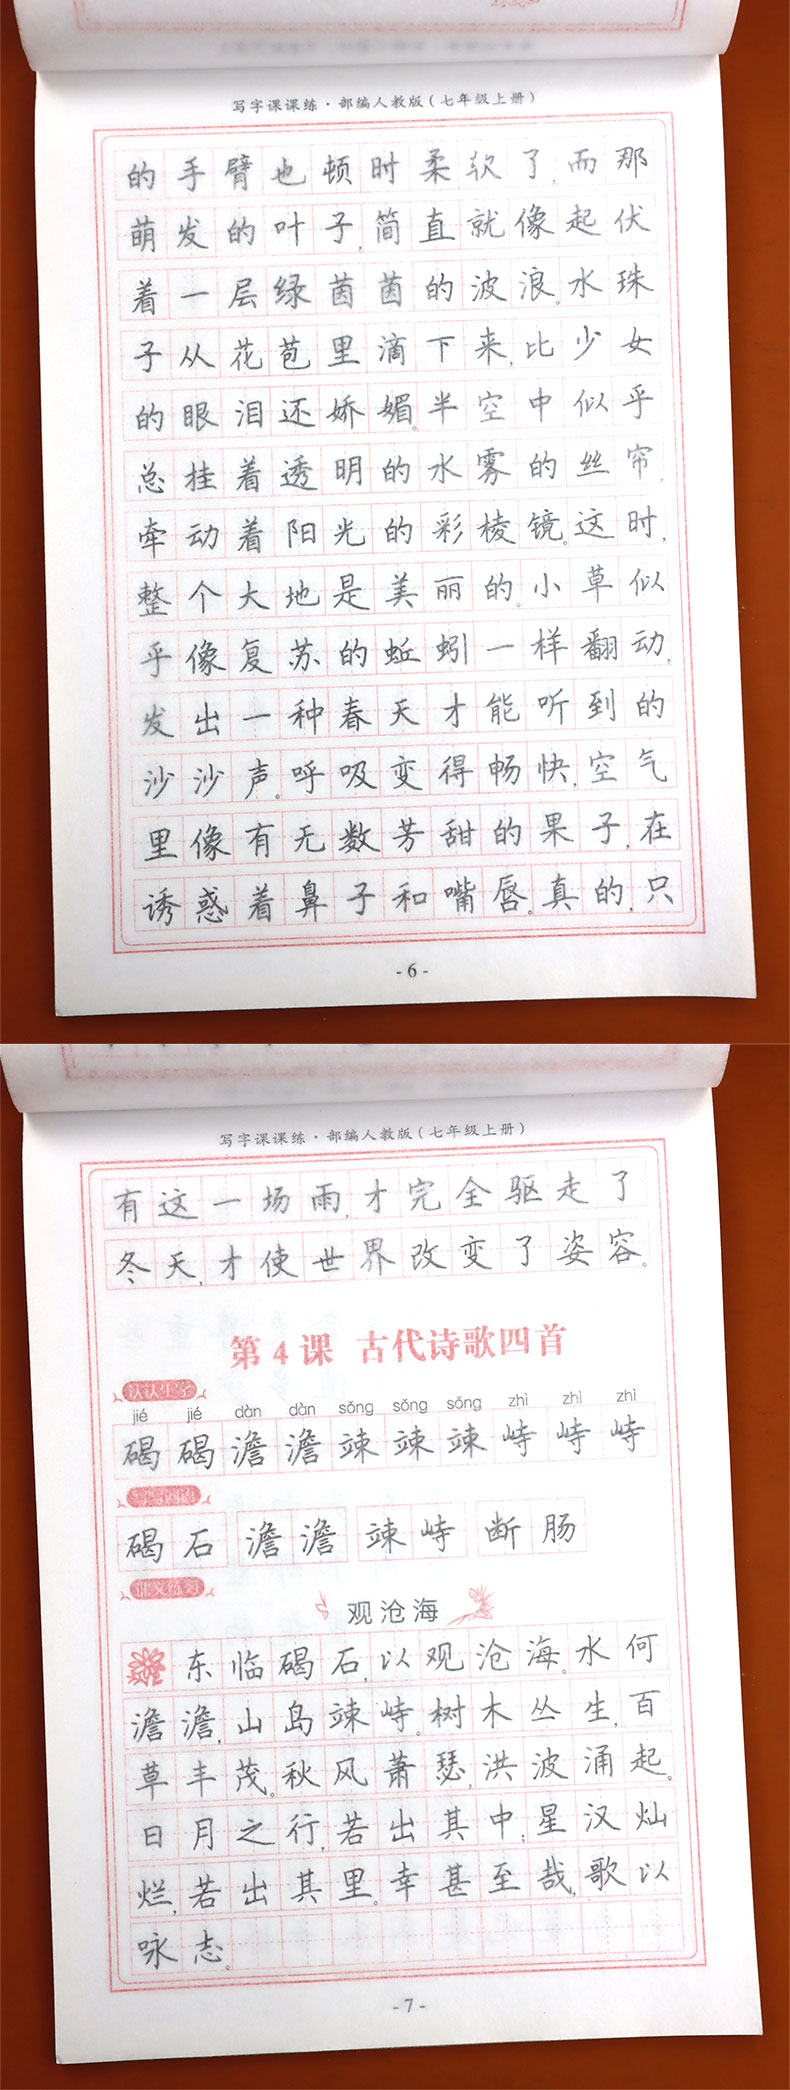 写字课课练·部编人教版(七年级上册)
的手臂也顿时柔软了,而那
萌发的叶子,简直就像起伏
着一层绿茵茵的波浪。水珠
子从花苞里滴下来,比少女
的眼泪还娇媚。半空中似乎
总挂着透明的水雾的丝帘,
牵动着阳光的彩棱镜。这时,
整个大地是美丽的。小草似
乎像复苏的蚯蚓一样翻动,
发出一种春天才能听到的
沙沙声。呼吸变得畅快,空气
里像有无数芳甜的果子,在
诱惑着鼻子和嘴唇。真的,只
-6-
写字课课练·部编人教版(七年级上册)
有这一场雨,才完全驱走了
冬天,才使世界改变了姿容。
第4课 古代诗歌四首
认认生字
jié jié dàn dàn sǒng sǒng sǒng zhì zhì zhì
碣碣澹澹竦竦竦峙峙峙
碣石 澹澹 竦峙 断肠
课文练习
观沧海
东临碣石,以观沧海。水何
澹澹,山岛竦峙。树木丛生,百
草丰茂。秋风萧瑟,洪波涌起。
日月之行,若出其中;星汉灿
烂,若出其里。幸甚至哉,歌以
咏志。
-7-